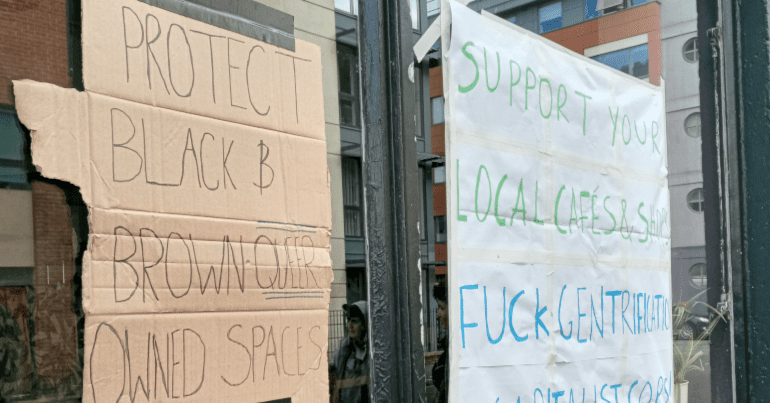 PROTECT
BLACK B
BROWN-QUEER
OWNED SPACES
SUPPORT YOUR
LOCAL CAFÉS & SHOPS
FUCK GENTRIFICATIO
CAPITALIST COPS!